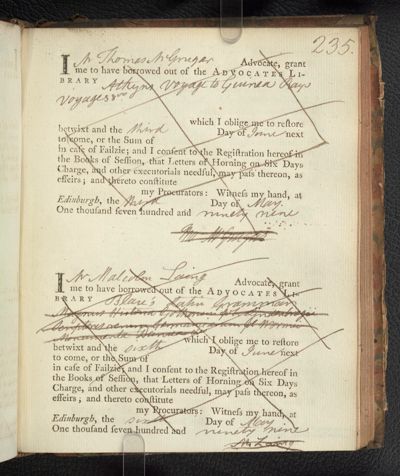 235.
I Mr Thomas McGrugar Advocate, grant
me to have borrowed out of the ADVOCATES LI-
BRARY Atkyns Voyage to Guinea Rays
Voyages 8vo
which I oblige me to restore
betwixt and the third Day of June next
to come, or the Sum of
in case of Failzie; and I consent to the Registration hereof in
the Books of Session, that Letters of Horning on Six Days
Charge, and other executorials needful, may pass thereon, as
effeirs; and thereto constitute
my Procurators: Witness my hand, at
Edinburgh, the third Day of May
One thousand seven hundred and ninety nine
I Mr Malcolm Laing Advocate, grant
me to have borrowed out of the ADVOCATES LI-
BRARY Blare's Latin Grammar
Magnus Historia
which I oblige me to restore
betwixt and the sixth Day of June next
to come, or the Sum of
in case of Failzie; and I consent to the Registration hereof in
the Books of Session, that Letters of Horning on Six Days
Charge, and other executorials needful, may pass thereon, as
effeirs; and thereto constitute
my Procurators: Witness my hand, at
Edinburgh, the sixth Day of May
One thousand seven hundred and ninety nine
Laing